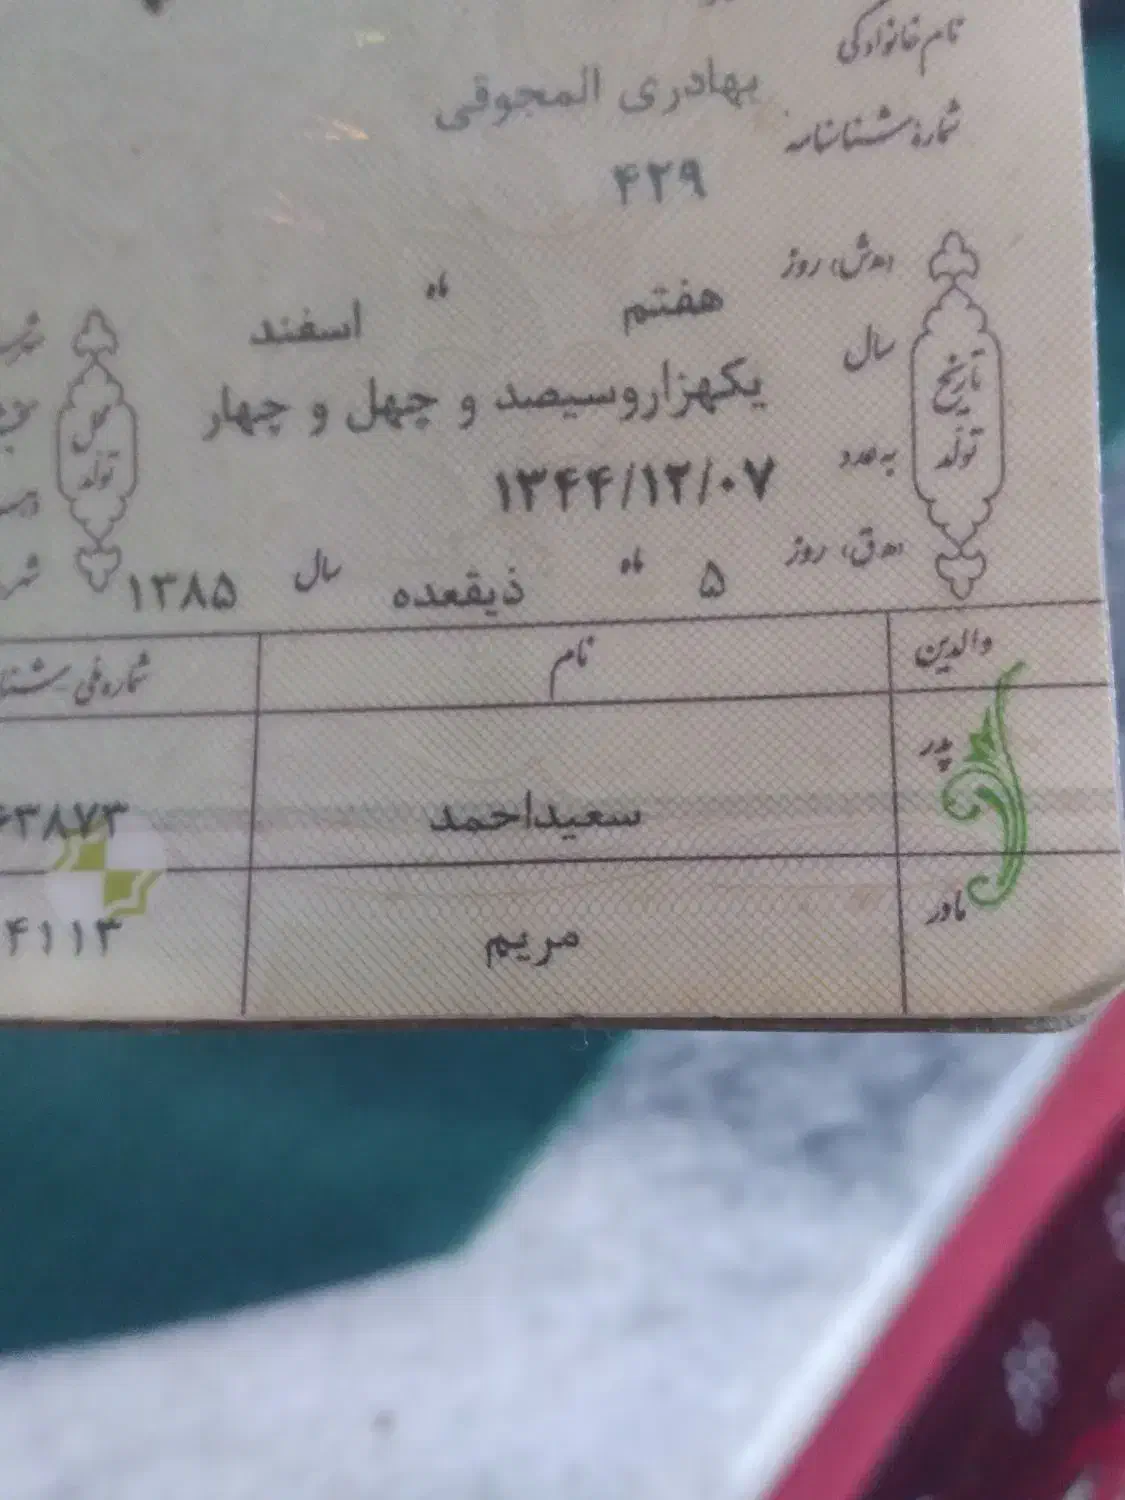 نام خانوادگی
بهادری المجوقی
شماره شناسنامه
۴۲۹
(ه‍.ش) روز هفتم ماه اسفند
سال یکهزاروسیصد و چهل و چهار
به عدد ۱۳۴۴/۱۲/۰۷
(ه‍.ق) روز ۵ ماه ذیقعده سال ۱۳۸۵
تاریخ تولد
محل تولد
والدین نام شماره ملی
پدر سعیداحمد ۳۸۷۳
مادر مریم ۴۱۱۳